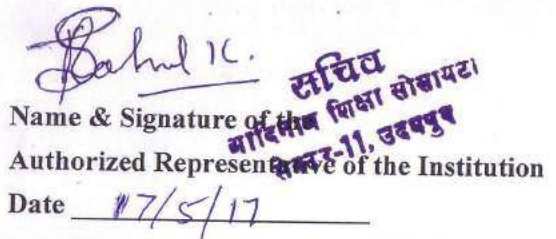 Rahul K.
सचिव
आदिनाथ शिक्षा सोसायटी
सेक्टर-11, उदयपुर
Name & Signature of the
Authorized Representative of the Institution
Date 17/5/17